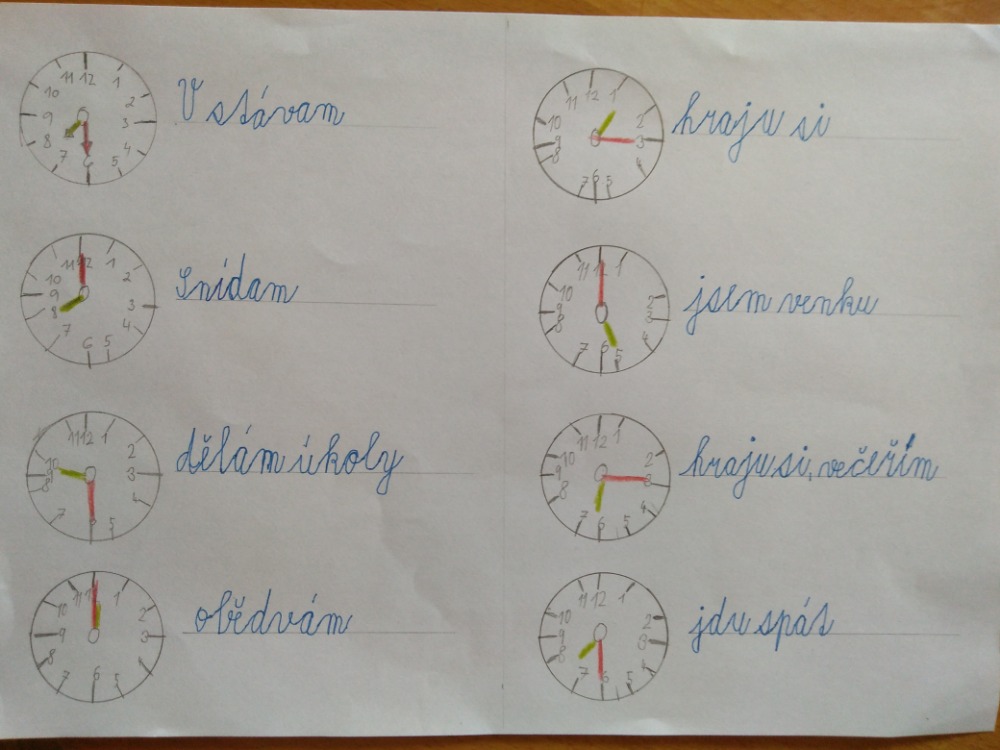 11 12 1
10 2
9 3
8 4
7 6 5
V stávam
11 12 1
10 2
9 3
8 4
7 6 5
Snídam
11 12 1
10 2
9 3
8 4
7 5
dělám úkoly
11 1
10 2
9 3
8 4
7 6 5
obědvám
11 12 1
10 2
9 3
8 4
7 6 5
hraju si
11 1
10 2
9 3
8 4
7 6 5
jsem venku
11 12 1
10 2
9 3
8 4
7 6 5
hraju si, večeřím
11 12 1
10 2
9 3
8 4
7 6 5
jdu spát